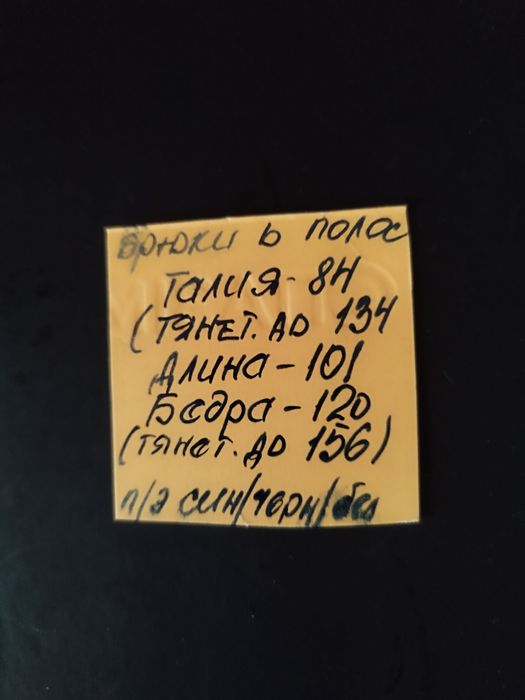 Брюки в полос
Талия - 84
(тянет. до 134
Длина - 101
Бедра - 120
(тянет. до 156)
п/э син/черн/бел